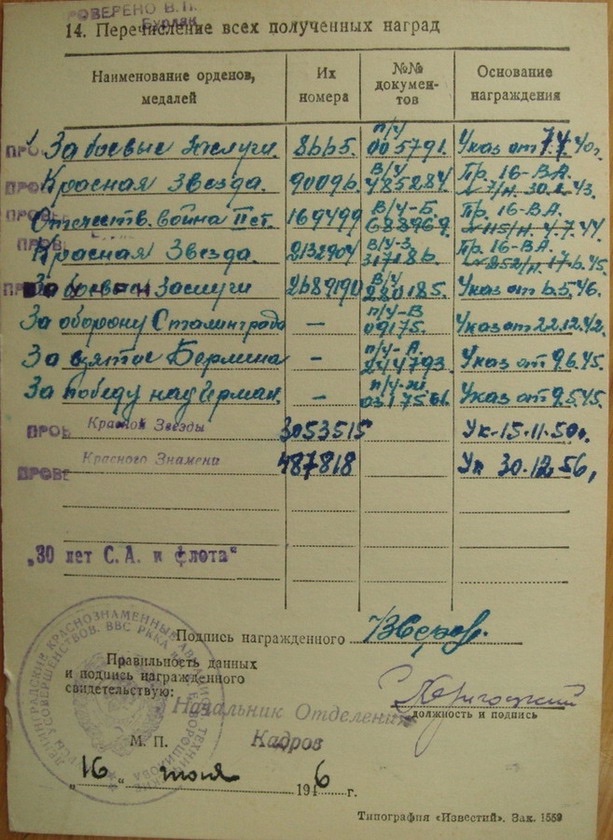 ПРОВЕРЕНО В.П.
14. Перечисление всех полученных наград
Наименование орденов, медалей
Их номера
№№ документов
Основание награждения
За боевые заслуги. 8665. п/у 005791. Указ от 7.7.40г.
Красная Звезда. 90096. В/У 485284. Пр. 16-ВА.
Отечеств. война II ст. 169499 В/У-Б. 688969. Пр. 16-ВА. 4.7.44.
Красная Звезда. 2132904 В/У-З. 317186. Пр. 16-ВА.
За боевые заслуги 2689190 В/У 280185. Указ от 6.5.46.
За оборону Сталинграда — п/у-В 09175. Указ от 22.12.42.
За взятие Берлина - п/у-А. 244793. Указ от 9.6.45.
За победу над Герман. - 0317561. Указ от 9.5.45.
ПРОВЕ Красной Звезды 3053515 Ук-15-11-50г.
ПРОВЕ Красного Знамени 487818 Ук 30.12.56,
„30 лет С.А. и флота“
Подпись награжденного
Правильность данных
и подпись награжденного
свидетельствую:
Начальник Отделения
должность и подпись
М. П.
Кадров
„16“ июля 1946 г.
Типография «Известий». Зак. 1559